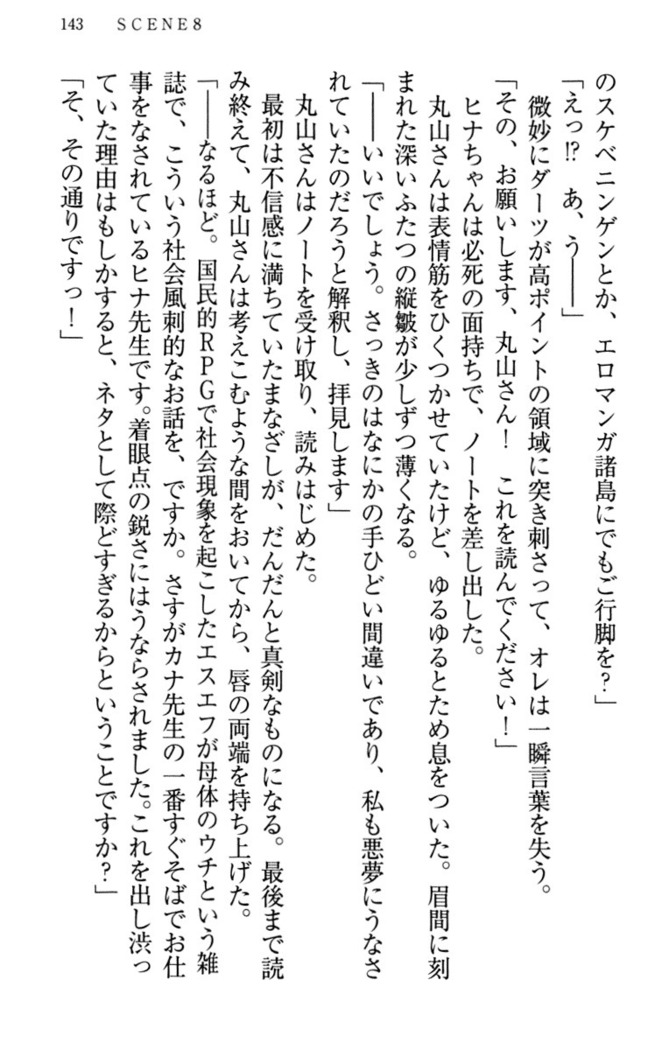 143　SCENE8
のスケベニンゲンとか、エロマンガ諸島にでもご行脚を？」
「えっ!?　あ、う――」
　微妙にダーツが高ポイントの領域に突き刺さって、オレは一瞬言葉を失う。
「その、お願いします、丸山さん！　これを読んでください！」
　ヒナちゃんは必死の面持ちで、ノートを差し出した。
　丸山さんは表情筋をひくつかせていたけど、ゆるゆるとため息をついた。眉間に刻
まれた深いふたつの縦皺が少しずつ薄くなる。
「――いいでしょう。さっきのはなにかの手ひどい間違いであり、私も悪夢にうなさ
れていたのだろうと解釈し、拝見します」
　丸山さんはノートを受け取り、読みはじめた。
　最初は不信感に満ちていたまなざしが、だんだんと真剣なものになる。最後まで読
み終えて、丸山さんは考えこむような間をおいてから、唇の両端を持ち上げた。
「――なるほど。国民的ＲＰＧで社会現象を起こしたエスエフが母体のウチという雑
誌で、こういう社会風刺的なお話を、ですか。さすがカナ先生の一番すぐそばでお仕
事をなされているヒナ先生です。着眼点の鋭さにはうならされました。これを出し渋っ
ていた理由はもしかすると、ネタとして際どすぎるからということですか？」
「そ、その通りですっ！」